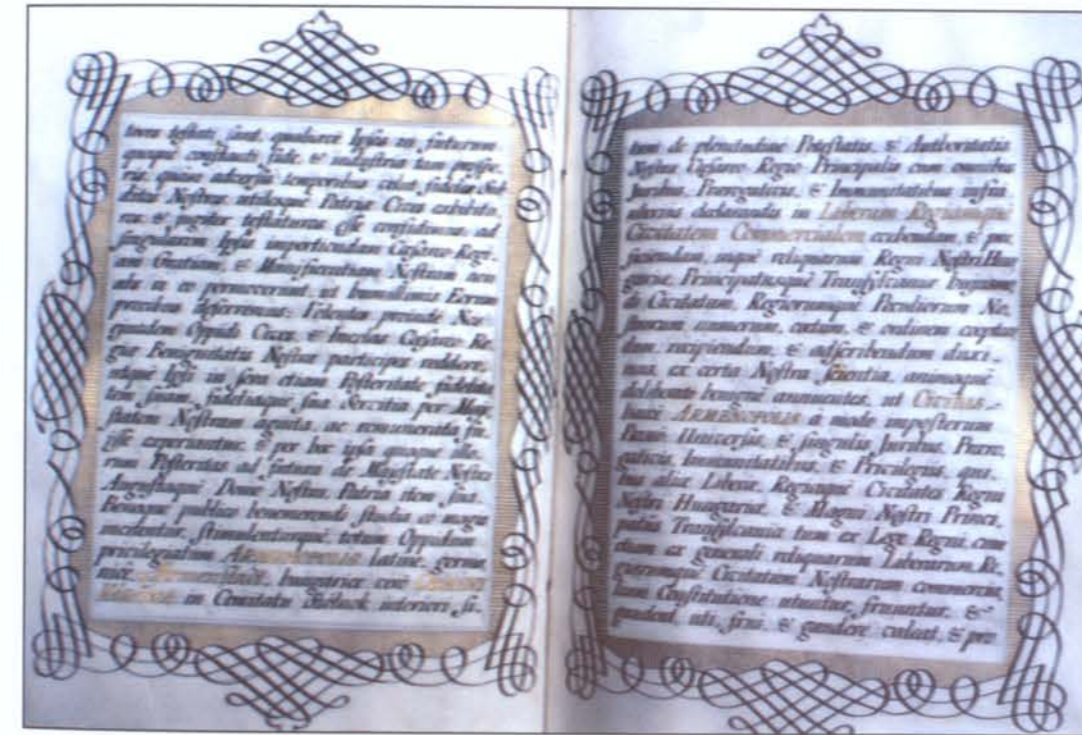 testati sunt, qualiave Ipsos in futurum
quoque constanti fide, & industria tam prospe-
ris, quam adversis temporibus velut fideles Sub-
ditos Nostros, utilesque Patriæ Cives exhibitu-
ros & porro testaturos esse confidimus, ad
singularem Ipsis impertiendam Cæsareo-Regi-
am Gratiam, & Munificentiam Nostram
ut humillimis Eorum
precibus Volentes proinde
quidem Oppidi Cives, & Incolas Cæsareo-Re-
giæ Benignitatis Nostræ participes reddere,
utque Ipsi in sera etiam Posteritate, fidelita-
tem suam, fideliaque sua Servitia per Maje-
statem Nostram agnita, ac remunerata fu-
isse experiantur, & per hoc ipsa quoque Illo-
rum Posteritas ad futura de Majestate Nostra
Augustaque Domo Nostra, Patria item sua,
Bonoque publico benemerendi studia eo magis
stimulenturque, totum Oppidum
privilegiatum ARMENOPOLIS latine, germa-
nice Hungarice vero
in Comitatu Szolnok interiori si-
tum de plenitudine Potestatis, & Authoritatis
Nostræ Cæsareo-Regio-Principalis cum omnibus
Juribus, Prærogativis, & Immunitatibus infra
declarandis in Liberam Regiamque
Civitatem Commercialem evehendum, & per-
ficiendum, inque reliquarum Regni Nostri Hun-
gariæ, Principatusque Transylvaniæ
Civitatum, Regiorumque Peculiorum No-
strorum numerum, cœtum, & ordinem cooptan-
dum, recipiendum, & adscribendum duxi-
mus, ex certa Nostra scientia, animoque
deliberato benigne annuentes, ut Civitas
hæc ARMENOPOLIS a modo imposterum
Universis, & singulis Juribus, Præro-
gativis, Immunitatibus, & Privilegiis, qui-
bus aliæ Liberæ, Regiæque Civitates Regni
Nostri Hungariæ, & Magni Nostri Princi-
patus Transylvaniæ tum ex Lege Regni, cum
etiam ex generali reliquarum Liberarum, Re-
giarumque Civitatum Nostrarum commercia-
lium Constitutione utuntur, fruuntur, &
gaudent uti, frui, & gaudere valeat, & pro